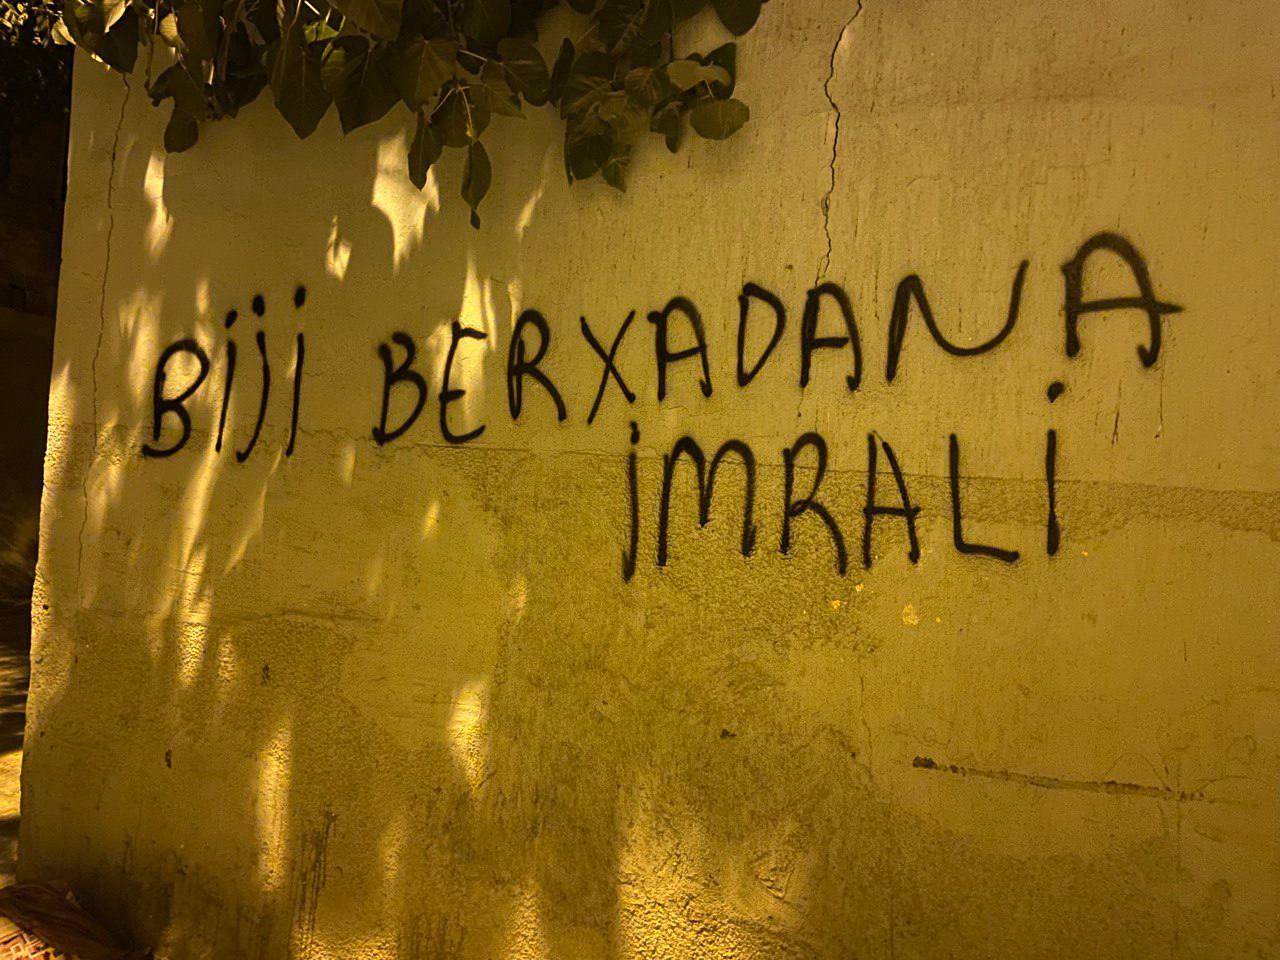 BiJi BERXADANA
İMRALİ